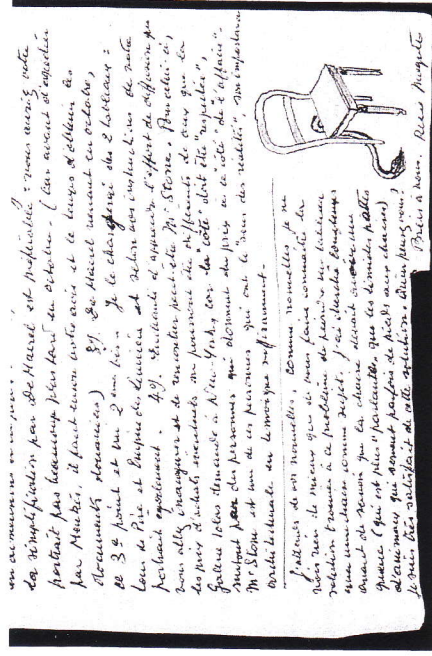 La simplification par De Maeret est préférable : vous aurez votre
portrait pas beaucoup plus tard en octobre. (Car avant d'expédier
par il faut encore votre avis et le temps d'obtenir les
documents douaniers) 3°/. De Maeret venant en octobre,
ce 3e point est un 2ème bis. Je le charge des 2 tableaux :
de Pise et Empire des lumières et selon vos instructions de votre
portrait également. 4°/. d'appuyer l'effort de diffusion que
vous allez envisager et de rencontrer peut-être Mr Stone. Pour celui-ci,
les prix d'achats éventuels ne peuvent être différents de ceux que la
Galerie Iolas demande à New-York, car la "côte" doit être "respectée",
surtout par des personnes qui donnent du prix à ce "côté" de l'affaire".
Mr Stone est un de ces personnes qui ont le sens des réalités, son importance
architecturale en témoigne suffisamment.
J'attends de vos nouvelles. Comme nouvelles je ne
vois rien de mieux que de vous faire connaître la
solution trouvée à ce problème de peindre un tableau
avec une chaise comme sujet. J'ai cherché longtemps
avant de savoir que la chaise devait avoir une
queue (qui est plus "parlante" que les timides pattes
d'animaux qui servent parfois de pieds aux chaises)
Je suis très satisfait de cette solution. Qu'en pensez-vous?
Bien à vous, René Magritte